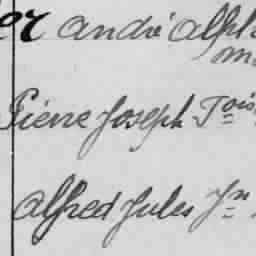 er André Alph
Pierre Joseph Tois
Alfred Jules Jn